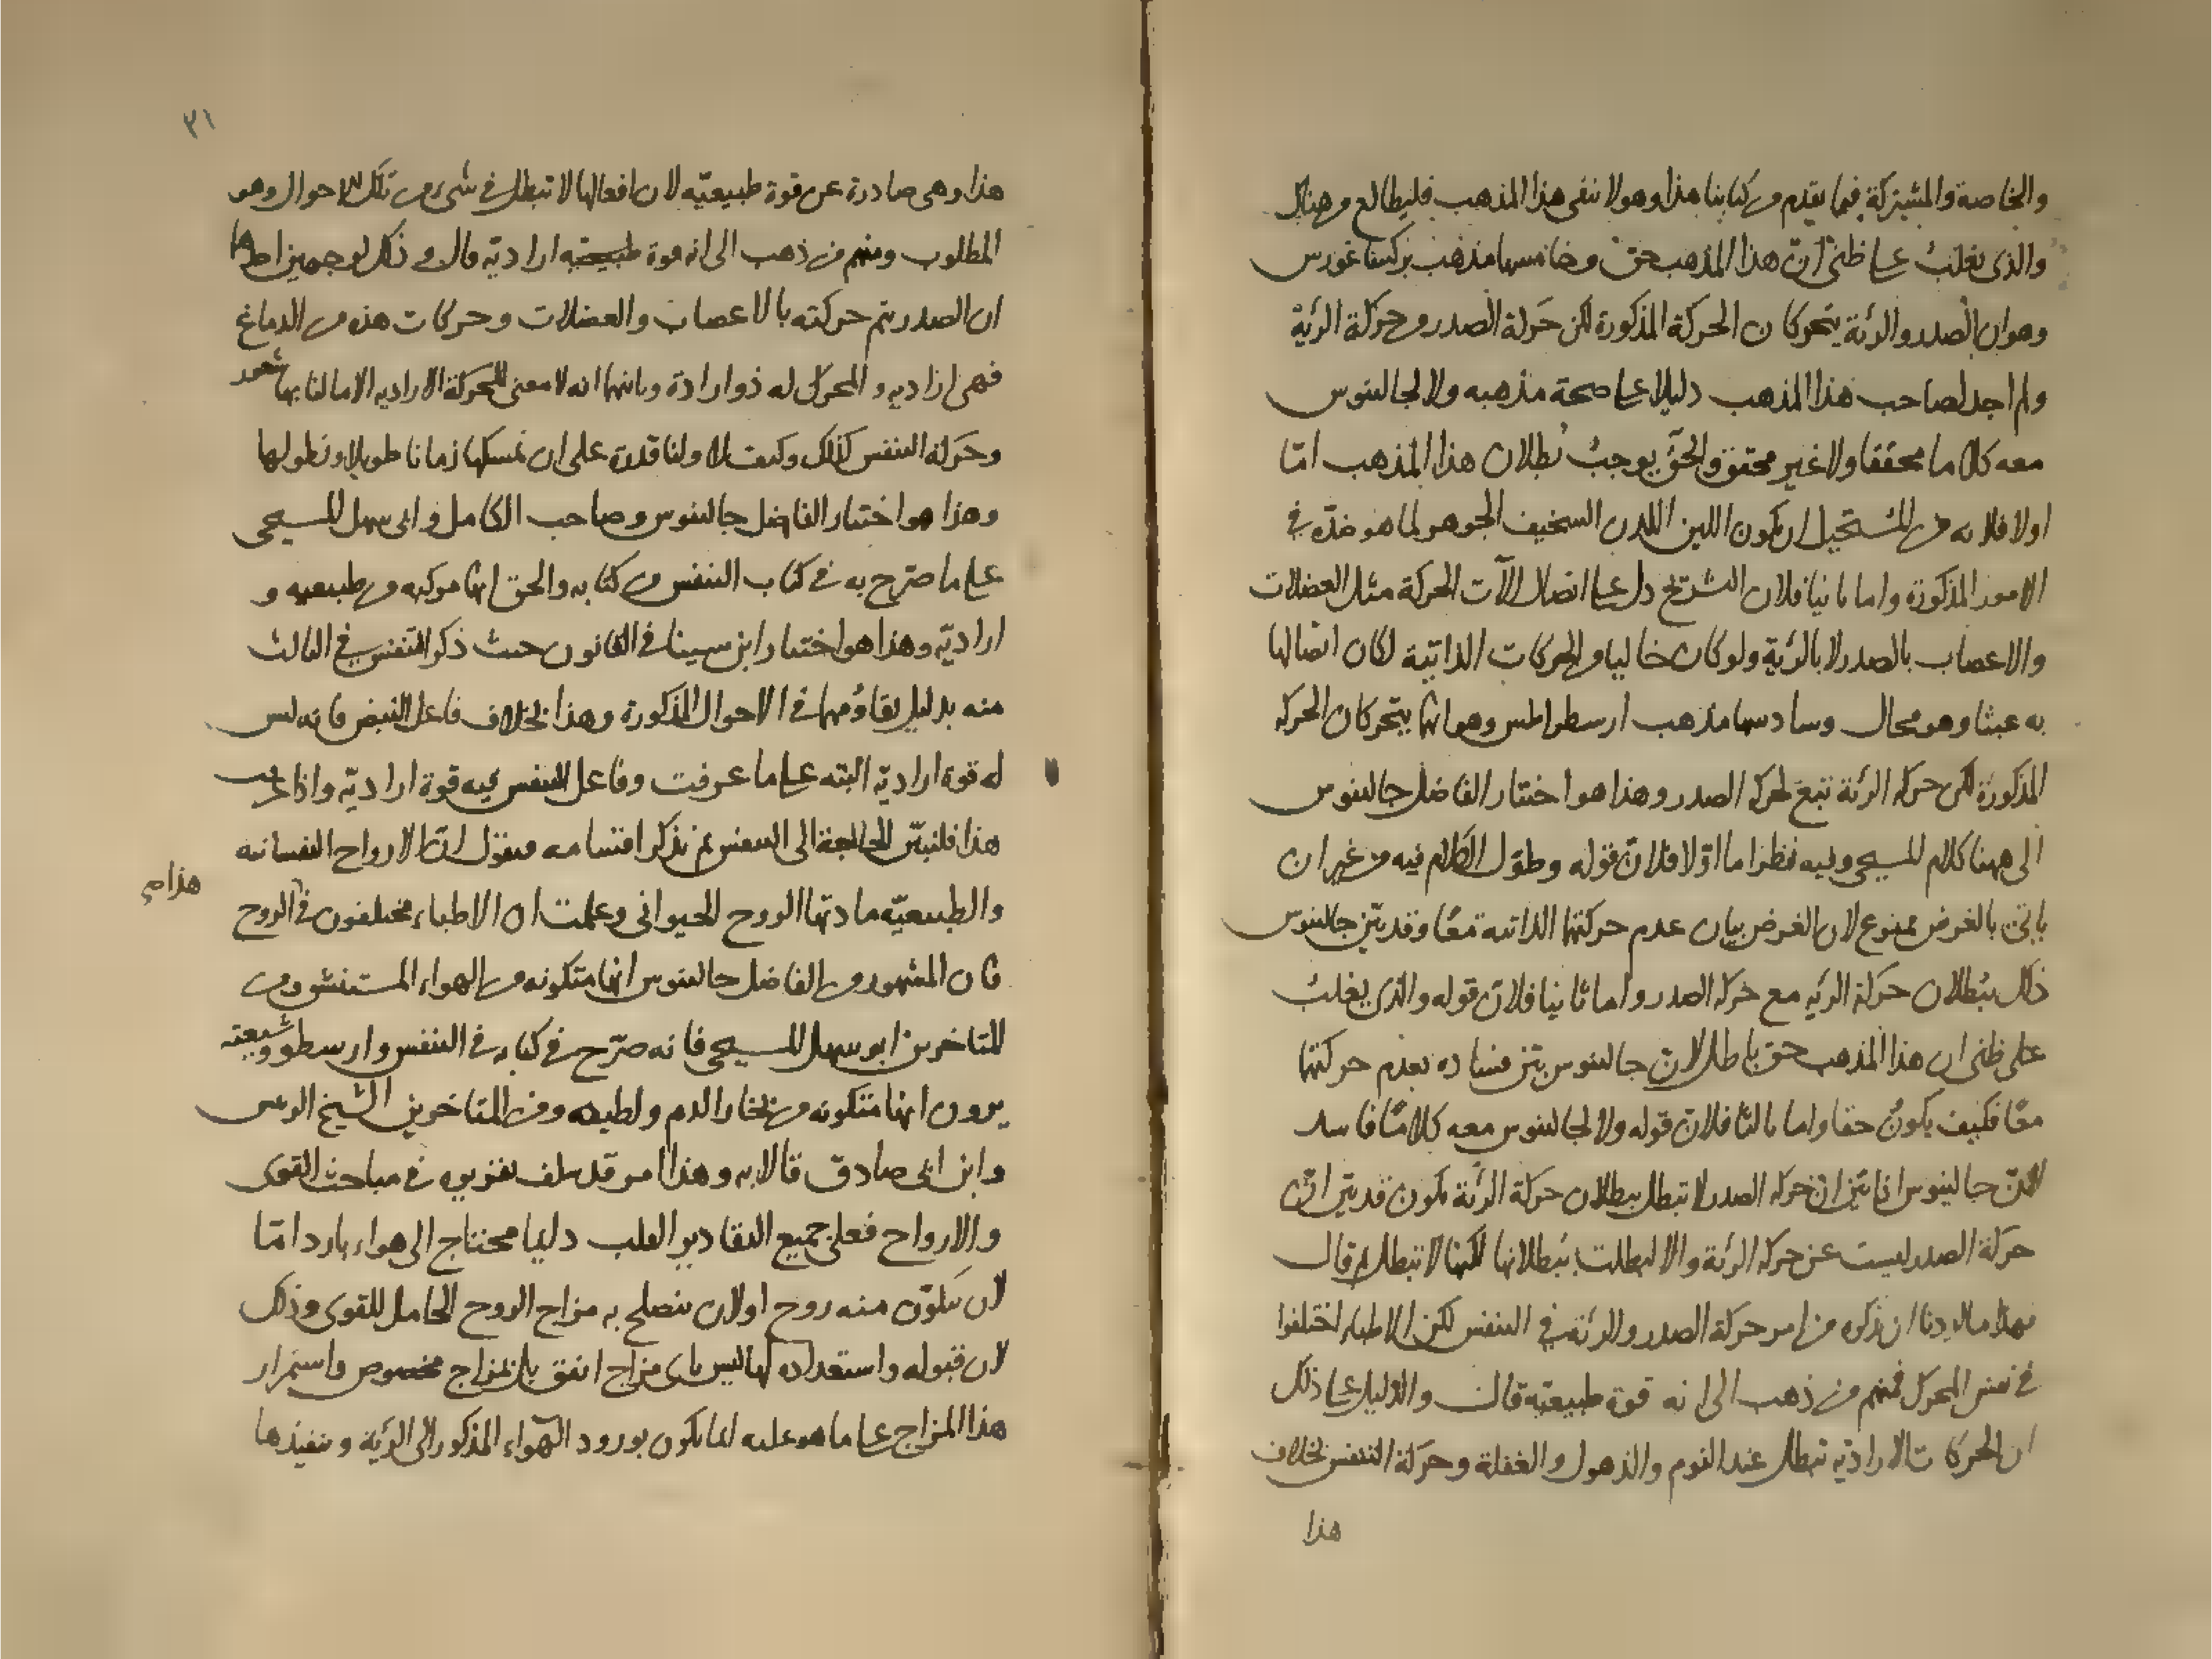 والخاصة والمشتركة فيما تقدم من كتابنا هذا وهو لا ينفى هذا المذهب فليطالع من هناك
والذى يغلب على ظنى ان هذا المذهب حق وخامسها مذهب بركساغورس
وهو ان الصدر والرئة يتحركان الحركة المذكورة لكن حركة الصدر وحركة الرئة
ولم اجد لصاحب هذا المذهب دليلا على صحة مذهبه ولا لجالينوس
معه كلاما محققا ولا غير محقق والحق يوجب بطلان هذا المذهب امّا
اولا فلانه من المستحيل ان يكون اللين اللدن السخيف الجوهر لما هو ضدّه فى
الامور المذكورة واما ثانيا فلان التشريح دل على اتصال الآت الحركة مثل العضلات
والاعصاب بالصدر لا بالرئة ولو كان خاليا من الحركات الذاتية لكان اتصالها
به عبثا وهو محال وسادسها مذهب ارسطراطس وهو انهما يتحركان الحركه
المذكورة لكن حركه الرئة تتبع لحركه الصدر وهذا هو اختيار الفاضل جالينوس
الى ههنا كلام المسيحى وفيه نظر اما اوّلا فلان قوله وطوّل الكلام فيه من غير ان
ياتى بالغرض ممنوع لان الغرض بيان عدم حركتهما الذاتيه معًا وقد بيّن جالينوس
ذلك ببطلان حركة الريه مع حركه الصدر واما ثانيا فلان قوله والذى يغلب
على ظنى ان هذا المذهب حق باطل لان جالينوس بيّن فساده بعدم حركتهما
معًا فكيف يكون حقا واما ثالثا فلان قوله ولا لجالينوس معه كلامًا فاسد
لانّ جالينوس اذا بيّن ان حركه الصدر لا تبطل ببطلان حركة الرئة يكون قد بيّن انّ
حركة الصدر ليست عن حركه الرئة والا لبطلت ببطلانها لكنها لا تبطل قال
فهذا ما اردنا ان نذكره من امر حركة الصدر والرئة فى التنفس لكن الاطباء اختلفوا
فى نفس المحرك فمنهم من ذهب الى انه قوة طبيعيّة قال والدليل على ذلك
ان الحركات الاراديّه تبطل عند النوم والذهول والغفلة وحركة التنفس بخلاف
هذا
٣١
هذا وهى صادرة عن قوة طبيعيّه لان افعالها لا تبطل فى شىء من تلك الاحوال وهو
المطلوب ومنهم من ذهب الى انه قوة طبيعيه اراديّه قال وذلك لوجهين احدهما
ان الصدر يتم حركته بالاعصاب والعضلات وحركات هذه من الدماغ
فهى اراديه والمحرك له ذو ارادة وثانيهما انه لا معنى للحركة الاراديه الا ما لنا بها شعور
وحركة التنفس كذلك وكيف لا ولنا قدرة على ان نمسكها زمانا طويلا ونطولها
وهذا هو اختيار الفاضل جالينوس وصاحب الكامل وابى سهل المسيحى
على ما صرّح به فى كتاب التنفس من كتابه والحق انها مركبه من طبيعيه و
اراديّه وهذا هو اختيار ابن سينا فى القانون حيث ذكر التنفس فى الثالث
منه بدليل بقاؤهما فى الاحوال المذكورة وهذا بخلاف فاعل النبض فانه ليس
له قوة اراديّه البته على ما عرفت وفاعل التنفس فيه قوة اراديّه واذا عرفت
هذا فلنبيّن الحاجة الى التنفس ثم نذكر اقسامه فنقول انّ الارواح النفسانيه
والطبيعيّه مادتها الروح الحيوانى وعلمت ان الاطباء مختلفون فى الروح
هذا م
فان المشهور من الفاضل جالينوس انها متكونه من الهواء المستنشق ومن
المتاخرين ابو سهل المسيحى فانه صرّح فى كتابه فى التنفس وارسطو وشيعته
يرون انها متكونه من بخار الدم ولطيفه ومن المتاخرين الشيخ الرئيس
وابن ابى صادق قالا به وهذا امر قد سلف تقريره فى مباحث القوى
والارواح فعلى جميع التقادير القلب دايما محتاج الى هواء بارد امّا
لان يتكوّن منه روح او لان ينصلح به مزاج الروح الحامل للقوى وذلك
لان قبوله واستعداده لها ليس باى مزاج اتفق بل بمزاج مخصوص واستمرار
هذا المزاج على ما هو عليه انما يكون بورود الهواء المذكور الى الرّئة وتنفيذها